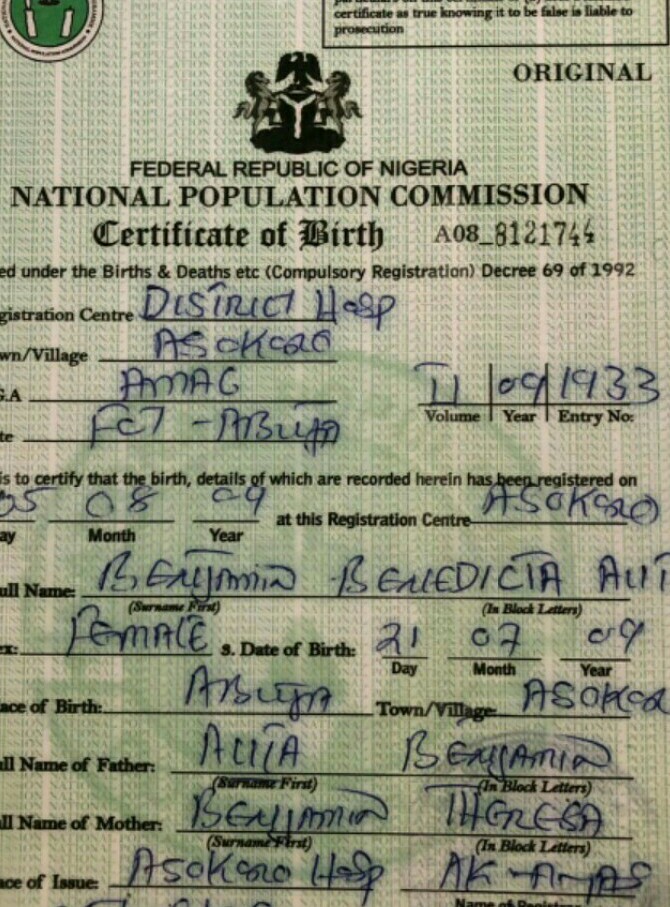 certificate as true knowing it to be false is liable to
prosecution
ORIGINAL
FEDERAL REPUBLIC OF NIGERIA
NATIONAL POPULATION COMMISSION
Certificate of Birth A08_8121744
ed under the Births & Deaths etc (Compulsory Registration) Decree 69 of 1992
gistration Centre DISTRICT Hosp
wn/Village ASOKORO
.G.A AMAC
II 09 1933
Volume Year Entry No:
te FCT - ABUJA
is to certify that the birth, details of which are recorded herein has been registered on
05 08 09 at this Registration Centre ASOKORO
ay Month Year
ull Name: BENJAMIN BENEDICTA ALIT
(Surname First) (In Block Letters)
ex: FEMALE s. Date of Birth: 21 07 09
Day Month Year
ace of Birth: ABUJA Town/Village ASOKORO
ull Name of Father: ALITA BENJAMIN
(Surname First) (In Block Letters)
ull Name of Mother: BENJAMIN THERESA
(Surname First) (In Block Letters)
ace of Issue: ASOKORO Hosp
Name of Registrar